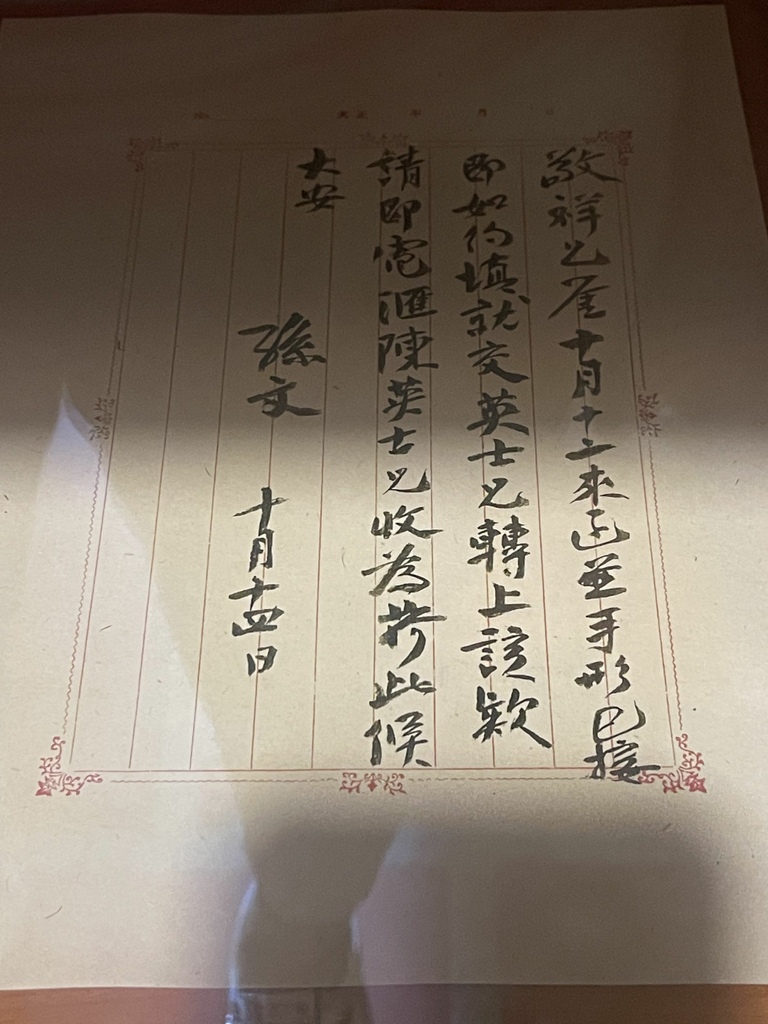 敬祥兄鉴十月十二來函並手形已接
即如約填就交英士兄轉上該欵
請即電滙陳英士兄收為荷此候
大安
孫文
十月十四日
大正 年 月 日